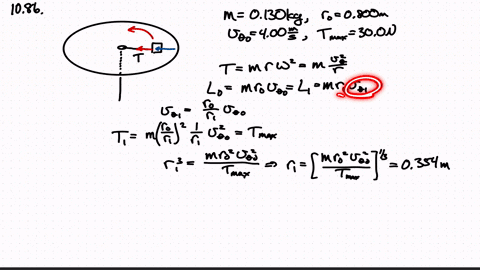 10.86.
m = 0.130kg, r₀ = 0.800m
v_θ0 = 4.00 m/s, T_max = 30.0N
T
T = m r ω² = m v_θ²/r
L₀ = m r₀ v_θ0 = L₁ = m r₁ v_θ1²
v_θ1 = r₀/r₁ v_θ0
T₁ = m (r₀/r₁)² 1/r₁ v_θ0² = T_max
r₁³ = m r₀² v_θ0² / T_max ⇒ r₁ = [m r₀² v_θ0² / T_max]^1/3 = 0.354m